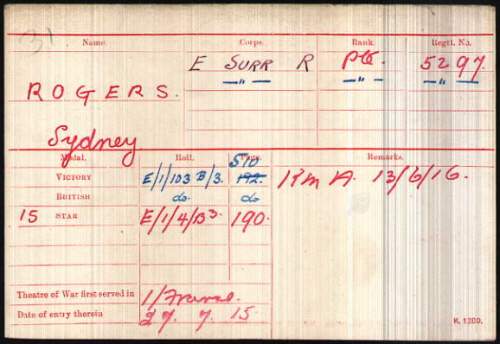 31.
Name. Corps. Rank. Regtl. No.
E SURR R Pte. 5297
" " "
ROGERS.
Sydney
Medal. Roll. Page. Remarks.
510
VICTORY E/1/103 B/3. 192. K in A. 13/6/16.
BRITISH do do
15 STAR E/1/4/B3. 190.
Theatre of War first served in 1/France.
Date of entry therein 27. 7. 15.
K. 1380.